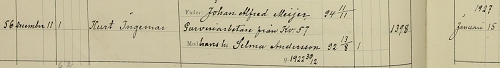 Fader Johan Alfred Meijer 94 11/11 1927
56 December 11 1 Kurt Ingemar Garveriarbetare från Kv. 57 1398 Januari 15
Mod hans h. Selma Andersson 92 13/8 1
g. 1922 30/12